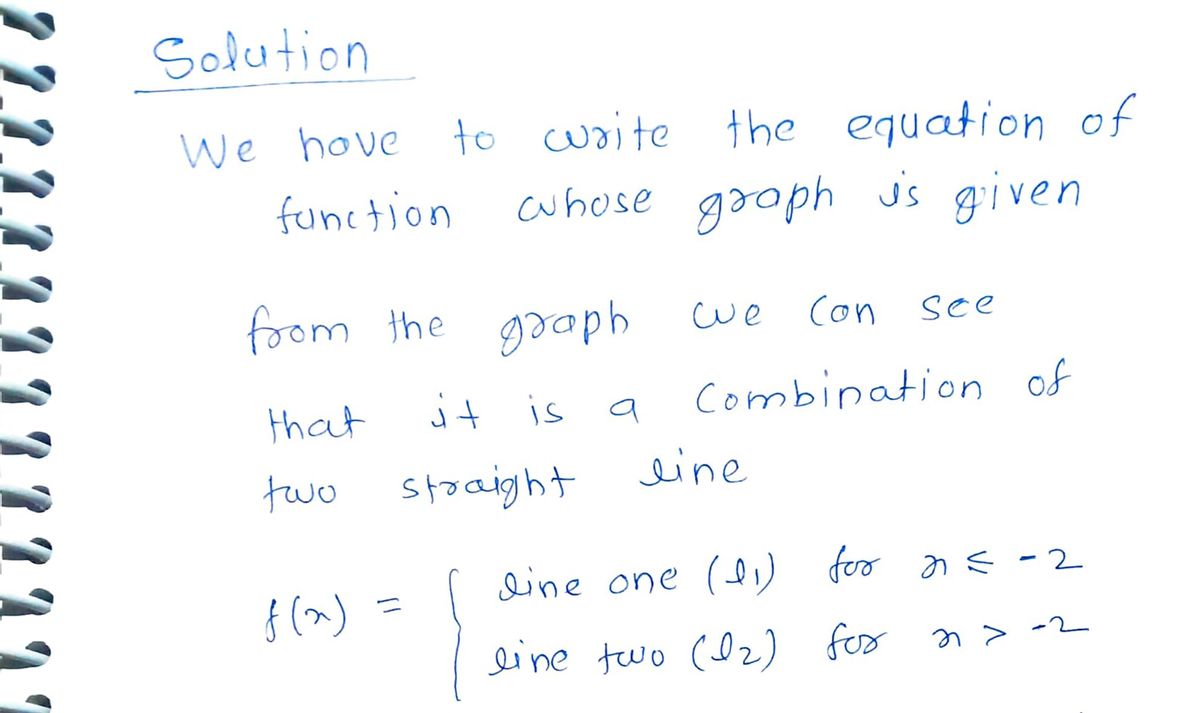 Solution
We have to write the equation of
function whose graph is given
from the graph we can see
that it is a Combination of
two straight line
f(x) = { line one (l1) for x ≤ -2
line two (l2) for x > -2